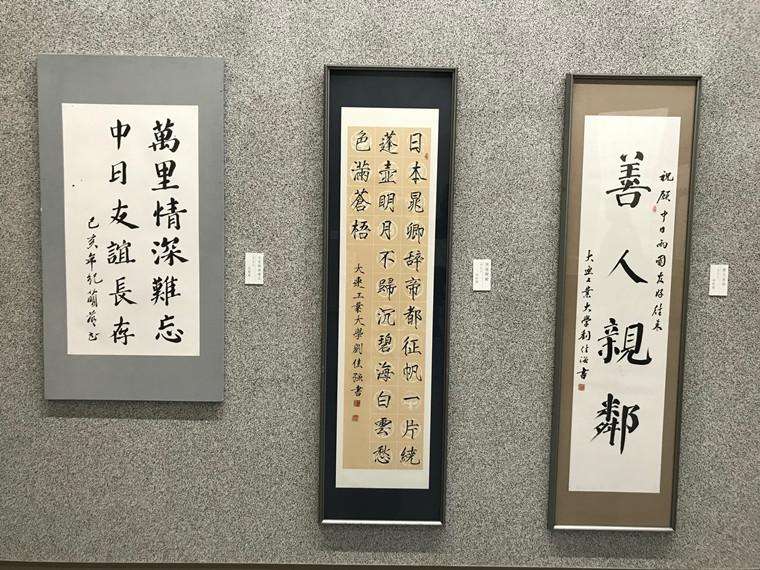 萬里情深難忘
中日友誼長存
己亥年
日本晁卿辞帝都征帆一片繞
蓬壺明月不歸沉碧海白雲愁
色滿蒼梧
大連工業大學劉佳強書
祝願中日两國友好往来
善人親鄰
大連工業大学劉佳強書